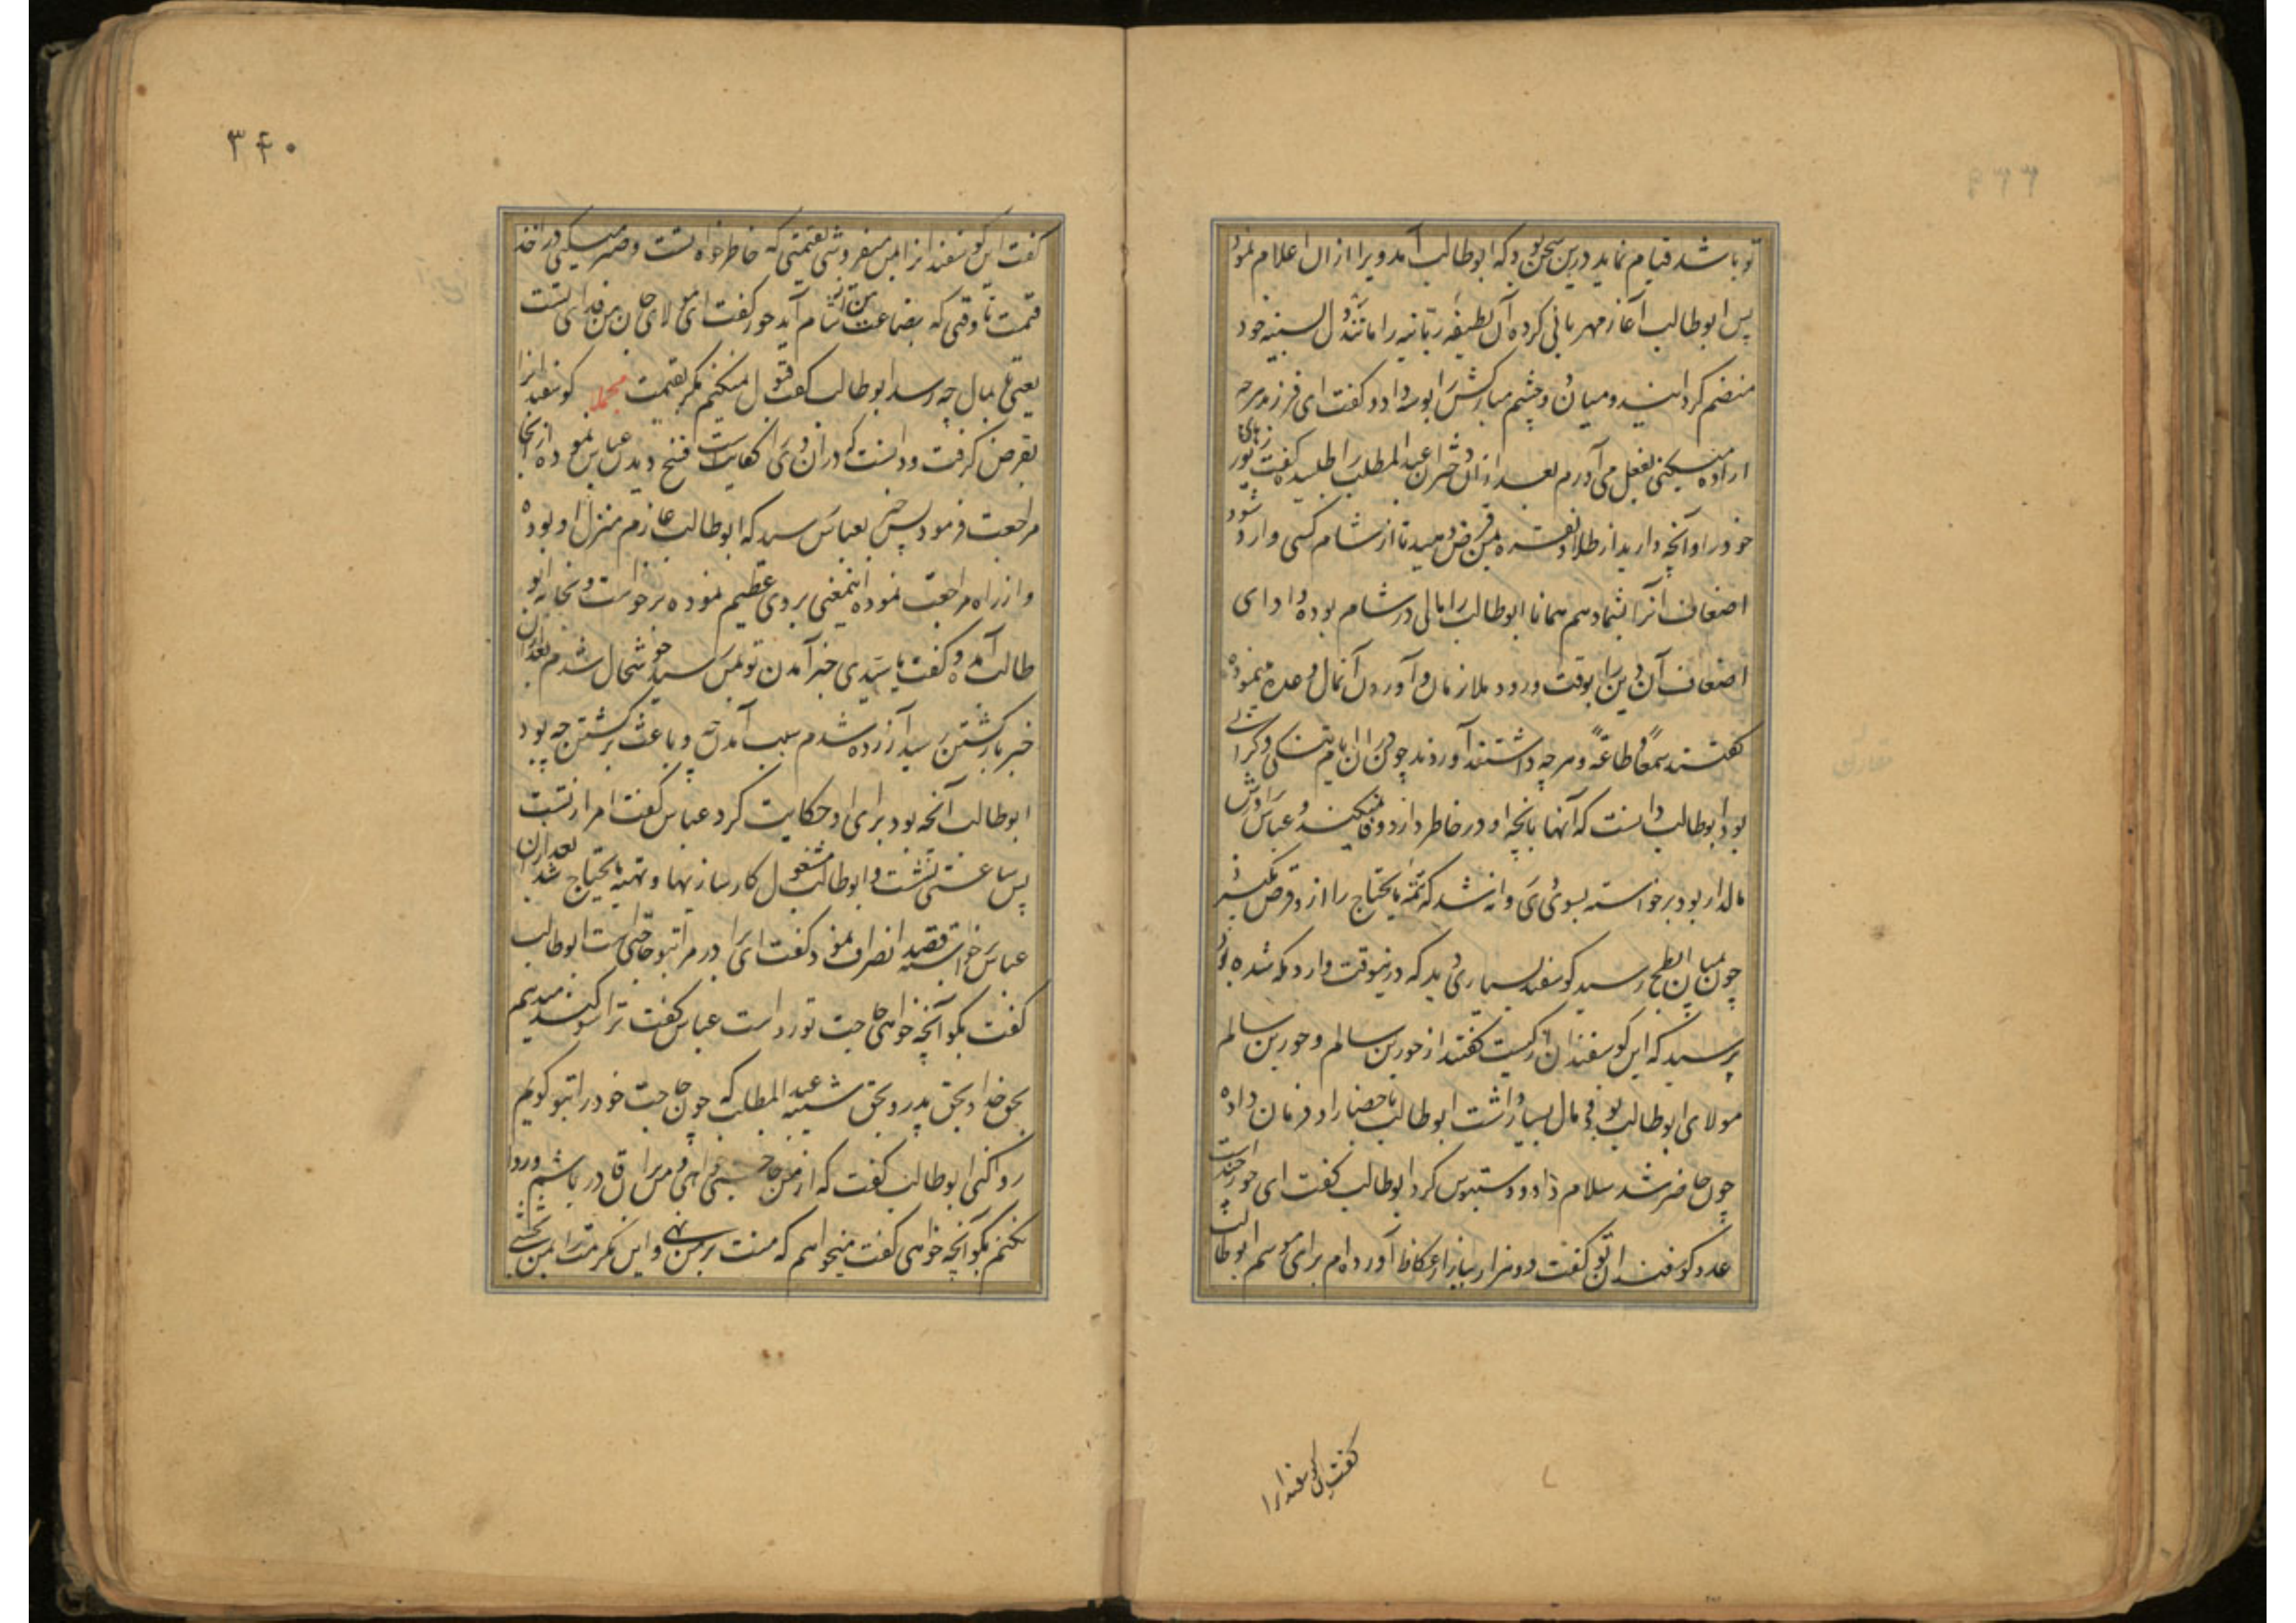 تو باشد قیام نماید درین سخن بود که ابوطالب آمد ویرا ازان اعلام نمود
پس ابوطالب آغاز مهربانی کرده آن لطیفه ربانیه را مانند دل بسینه خود
منضم کردانید و میان دو چشم مبارکش را بوسه داد و کفت ای فرزند هرچه
اراده میکنی بفعل می آورم بعد ازان دختران عبدالمطلب را طلبیده کفت زیورهای
خود را و آنچه دارید از طلا و نقره بمن قرض دهید تا از شام کسی وارد شود
اضعاف آنرا بشما دهم همانا ابوطالب را مالی در شام بوده و ادای
اضعاف آن دین را بوقت ورود ملازمان و آوردن آنمال وعده مینموده
کفتند سمعا و طاعة و هرچه داشتند آوردند چون دران ایام تنکی و کرانی
بود ابوطالب دانست که آنها بآنچه او در خاطر دارد وفا نمیکند و عباس برادرش
مالدار بود برخواسته بسوی وی روانه شد که تتمه مایحتاج را ازو قرض بگیرد
چون بمیان ابطح رسید کوسفند بسیاری دید که درینوقت وارد مکه شده بود
پرسید که این کوسفندان از کیست کفتند از حور بن سالم و حور بن سالم
مولای ابوطالب بود و مال بسیار داشت ابوطالب باحضار او فرمان داده
چون حاضر شد سلام داد و دستبوس کرد ابوطالب کفت ای حور چندست
عدد کوسفندان تو کفت دو هزار بیاز از عکاظ آورده ام برای موسم ابوطالب
کفت این کوسفندانرا
۳۴۰
کفت این کوسفندانرا بمن میفروشی بقیمتی که خاطرخواه تست و صبر میکنی در اخذ
قیمت تا وقتی که بضاعت من از شام آید حور کفت ای مولای جان من فدای تست
یعنی تا بمال چه رسد ابوطالب کفت قبول نمیکنم مکر بقیمت مجملا کوسفندانرا
بقرض کرفت و دانست که دران وی را کفایت است فسخ دیدن عباس نموده ازانجا
مراجعت فرمود پس خبر بعباس رسید که ابوطالب عازم منزل او بوده
و از راه مراجعت نموده اینمعنی بروی عظیم نموده برخواست و بخانه ابو
طالب آمده و کفت یا سیدی خبر آمدن تو بمن رسید خوشحال شدم بعد ازان
خبر بازکشتن رسید آزرده شدم سبب آمدن چه و باعث برکشتن چه بود
ابوطالب آنچه بود برای او حکایت کرد عباس کفت امر از تست
پس ساعتی نشست و ابوطالب مشغول کارسازیها و تهیه مایحتاج شد بعد ازان
عباس برخواسته قصد انصراف نمود و کفت ای برادر مرا بتو حاجتی است ابوطالب
کفت بکو آنچه خواهی حاجت تو رواست عباس کفت ترا سوکند میدهم
بحق خدا و بحق پدر و بحق شیبه عبدالمطلب که چون حاجت خود را بتو کویم
روا کنی ابوطالب کفت که از من حاجتی خواهی و من بران قادر باشم و روا
نکنم بکو آنچه خواهی کفت میخواهم که منت بر من نهی و این مکرمت را بمن بخشی